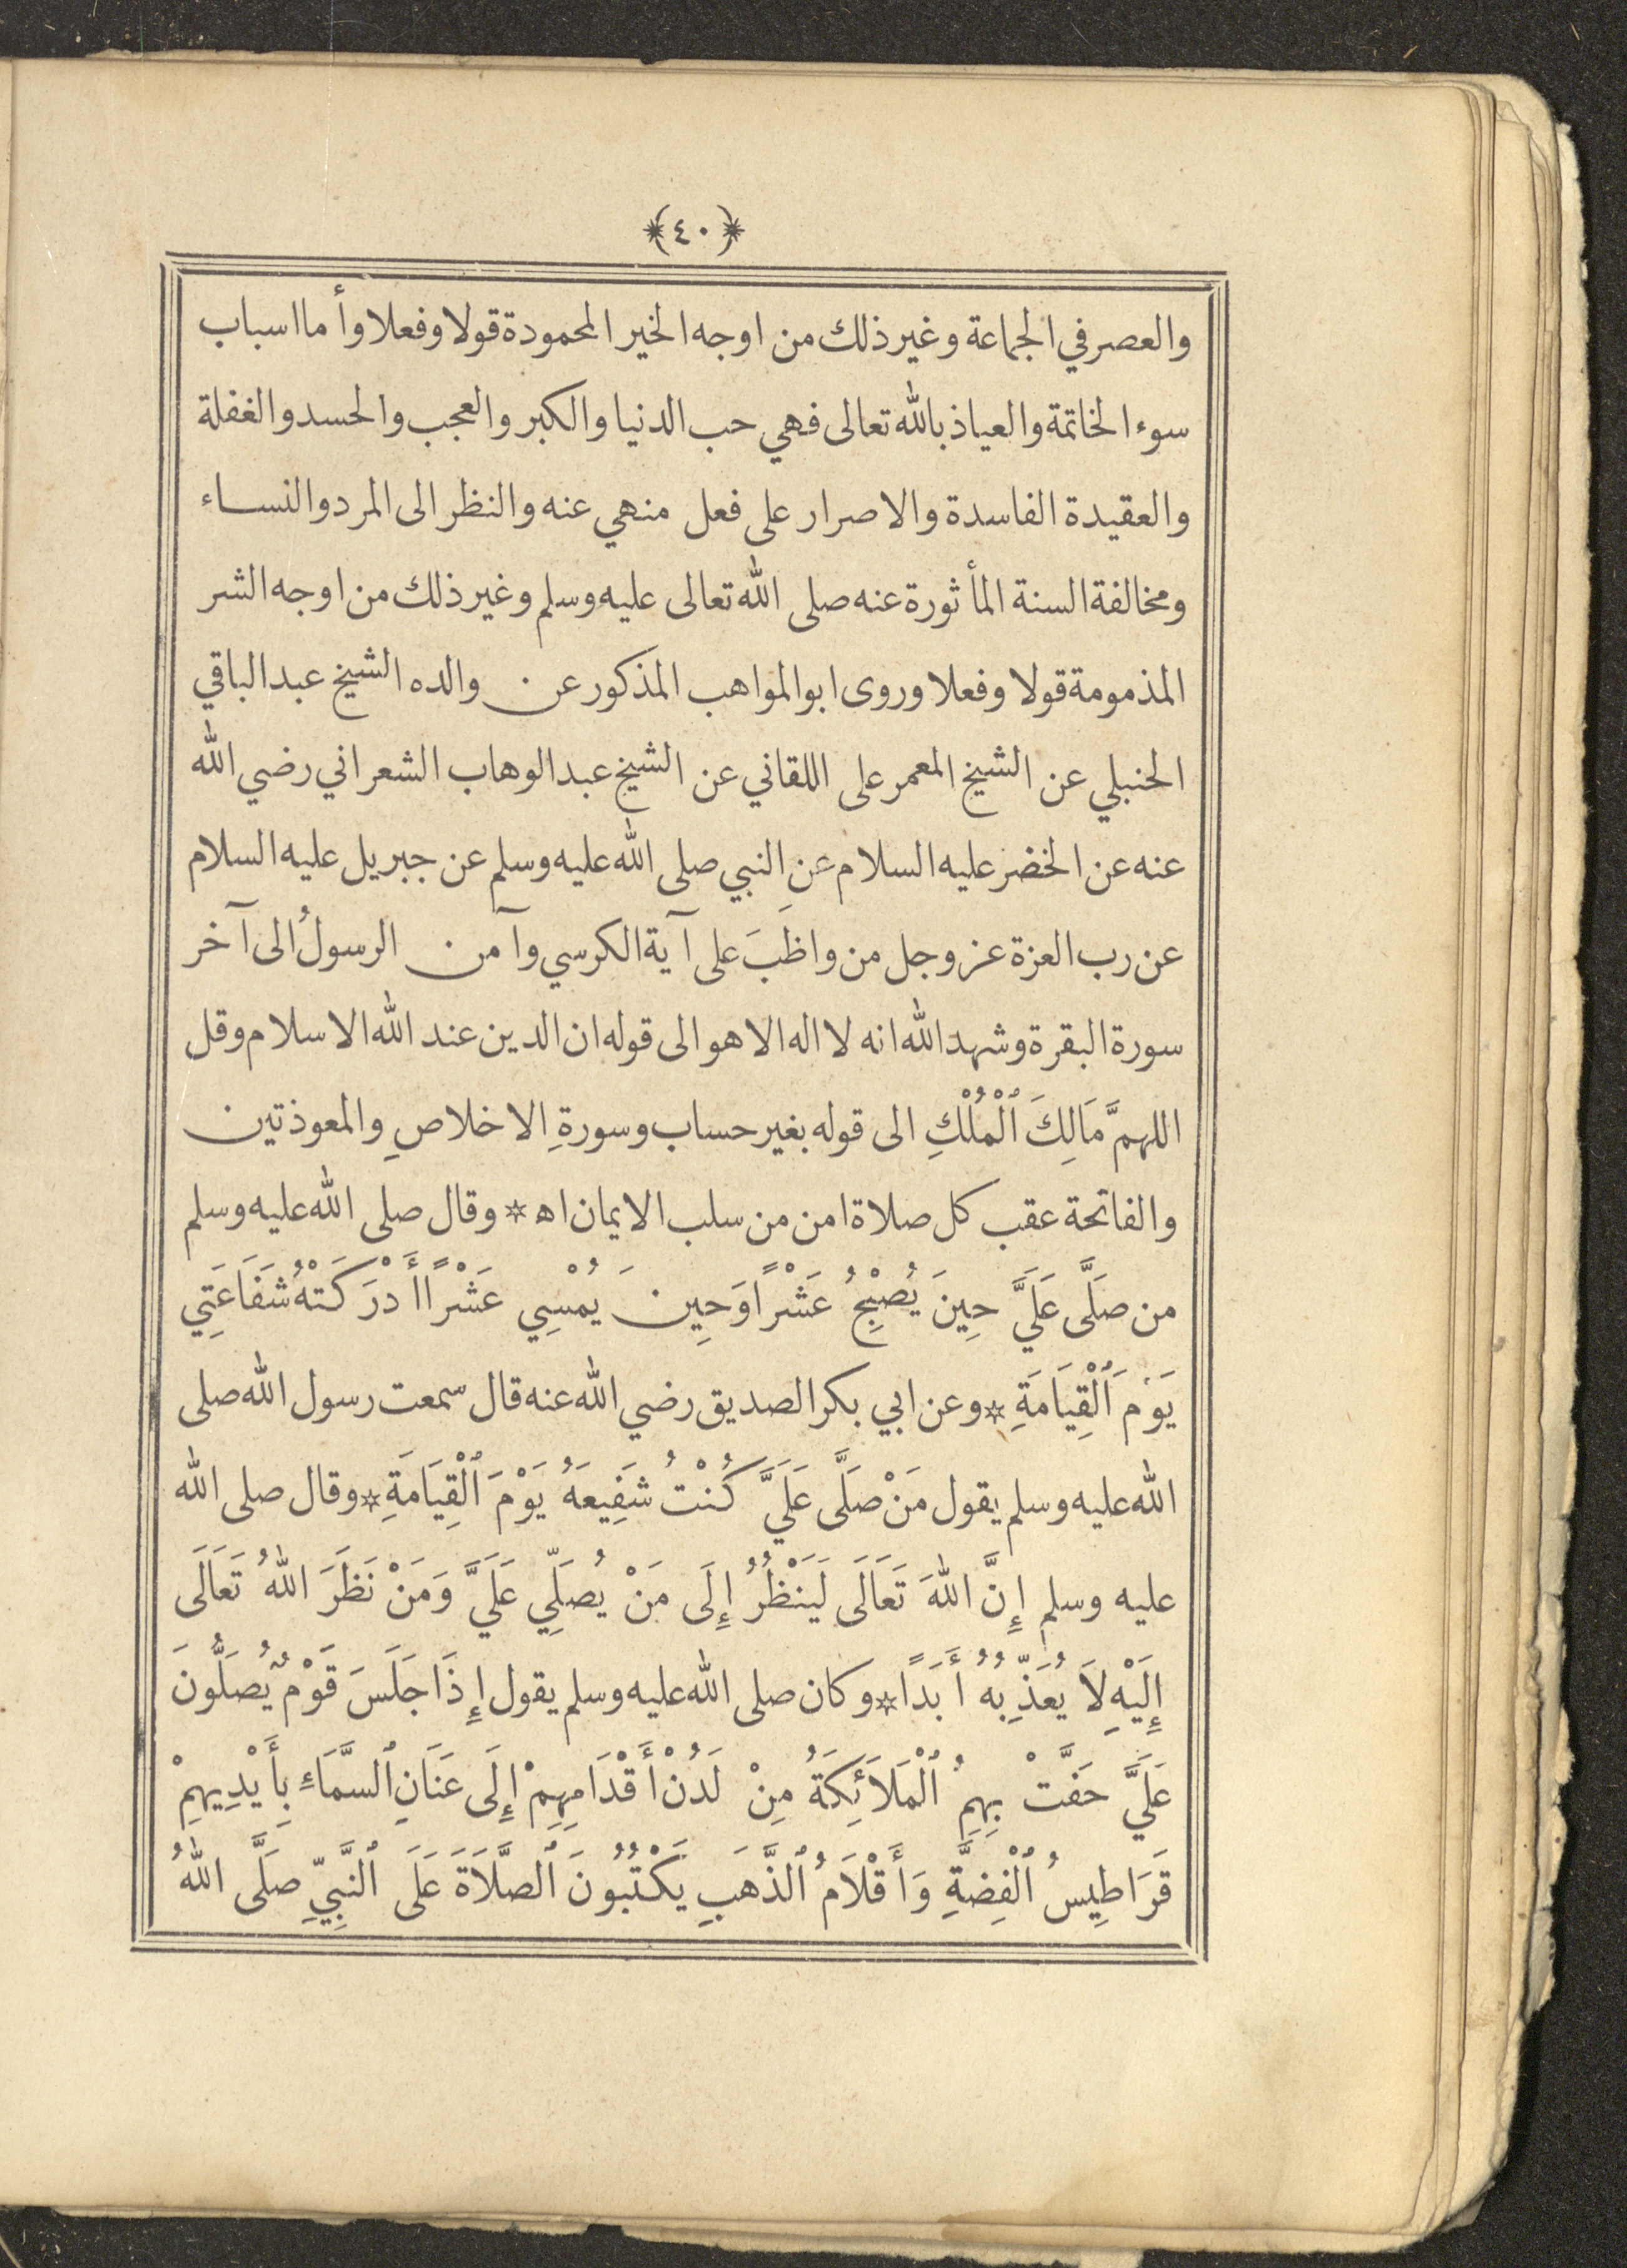 ﴿٤٠﴾
والعصر في الجماعة وغير ذلك من اوجه الخير المحمودة قولا وفعلا وأما اسباب
سوء الخاتمة والعياذ بالله تعالى فهي حب الدنيا والكبر والعجب والحسد والغفلة
والعقيدة الفاسدة والاصرار على فعل منهي عنه والنظر الى المرد والنساء
ومخالفة السنة المأثورة عنه صلى الله تعالى عليه وسلم وغير ذلك من اوجه الشر
المذمومة قولا وفعلا وروى ابو المواهب المذكور عن والده الشيخ عبد الباقي
الحنبلي عن الشيخ المعمر على اللقاني عن الشيخ عبد الوهاب الشعراني رضي الله
عنه عن الخضر عليه السلام عن النبي صلى الله عليه وسلم عن جبريل عليه السلام
عن رب العزة عز وجل من واظَبَ على آية الكرسي وآمن الرسولُ الى آخر
سورة البقرة وشهد الله انه لا اله الا هو الى قوله ان الدين عند الله الاسلام وقل
اللهمَّ مَالِكَ ٱلْمُلْكِ الى قوله بغير حساب وسورةِ الاخلاصِ والمعوذتين
والفاتحة عقب كل صلاة امن من سلب الايمان اه * وقال صلى الله عليه وسلم
من صَلَّى عَلَيَّ حِينَ يُصْبِحُ عَشْرًا وَحِينَ يُمْسِي عَشْرًا أَدْرَكَتْهُ شَفَاعَتِي
يَوْمَ ٱلْقِيَامَةِ * وعن ابي بكر الصديق رضي الله عنه قال سمعت رسول الله صلى
الله عليه وسلم يقول مَنْ صَلَّى عَلَيَّ كُنْتُ شَفِيعَهُ يَوْمَ ٱلْقِيَامَةِ * وقال صلى الله
عليه وسلم إِنَّ اللهَ تَعَالَى لَيَنْظُرُ إِلَى مَنْ يُصَلِّي عَلَيَّ وَمَنْ نَظَرَ اللهُ تَعَالَى
إِلَيْهِ لاَ يُعَذِّبُهُ أَبَدًا * وكان صلى الله عليه وسلم يقول إِذَا جَلَسَ قَوْمٌ يُصَلُّونَ
عَلَيَّ حَفَّتْ بِهِمُ ٱلْمَلاَئِكَةُ مِنْ لَدُنْ أَقْدَامِهِمْ إِلَى عَنَانِ ٱلسَّمَاءِ بِأَيْدِيهِمْ
قَرَاطِيسُ ٱلْفِضَّةِ وَأَقْلاَمُ ٱلذَّهَبِ يَكْتُبُونَ ٱلصَّلاَةَ عَلَى ٱلنَّبِيِّ صَلَّى اللهُ